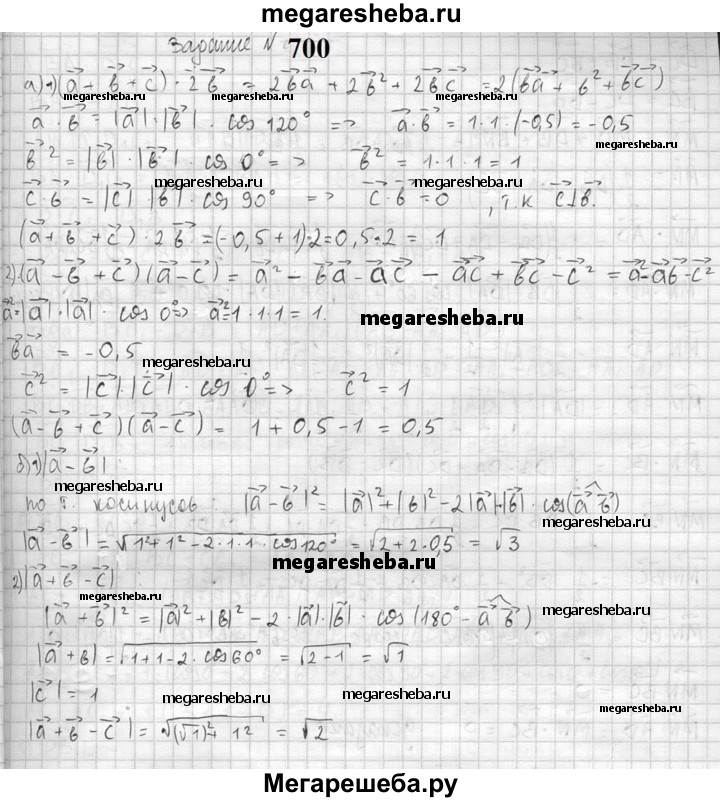 megaresheba.ru
Задание N 700
а) 1) (a⃗ + b⃗ + c⃗) · 2b⃗ = 2b⃗a⃗ + 2b⃗² + 2b⃗c⃗ = 2(b⃗a⃗ + b² + b⃗c⃗)
megaresheba.ru megaresheba.ru megaresheba.ru
a⃗ · b⃗ = |a⃗| · |b⃗| · cos 120° => a⃗ · b⃗ = 1 · 1 · (-0,5) = -0,5
megaresheba.ru
b⃗² = |b⃗| · |b⃗| · cos 0° => b⃗² = 1 · 1 · 1 = 1
megaresheba.ru megaresheba.ru
c⃗ · b = |c⃗| |b⃗| · cos 90° => c⃗ · b⃗ = 0 , т.к c⃗⊥b⃗.
(a⃗ + b⃗ + c⃗) · 2b⃗ = (-0,5 + 1) · 2 = 0,5 · 2 = 1
2) (a⃗ - b⃗ + c⃗)(a⃗ - c⃗) = a⃗² - b⃗a⃗ - a⃗c⃗ - a⃗c⃗ + b⃗c⃗ - c⃗² = a⃗² - a⃗b⃗ - c⃗²
a⃗² = |a⃗| · |a⃗| · cos 0° => a⃗² = 1 · 1 · 1 = 1.
megaresheba.ru
b⃗a⃗ = -0,5
megaresheba.ru
c⃗² = |c⃗| · |c⃗| · cos 0° => c⃗² = 1
(a⃗ - b⃗ + c⃗)(a⃗ - c⃗) = 1 + 0,5 - 1 = 0,5
б) 1) |a⃗ - b⃗|
megaresheba.ru megaresheba.ru
по т. косинусов: |a⃗ - b⃗|² = |a⃗|² + |b|² - 2|a⃗| · |b⃗| · cos(a⃗ b⃗)
megaresheba.ru
|a⃗ - b⃗| = √(1² + 1² - 2 · 1 · 1 · cos 120°) = √(2 + 2 · 0,5) = √3
megaresheba.ru
2) |a⃗ + b⃗ - c⃗|
megaresheba.ru
|a⃗ + b⃗|² = |a⃗|² + |b|² - 2 · |a⃗| · |b⃗| · cos (180° - a⃗ b⃗)
megaresheba.ru
|a⃗ + b| = √(1 + 1 - 2 · cos 60°) = √(2 - 1) = √1
|c⃗| = 1
megaresheba.ru megaresheba.ru megaresheba.ru
|a⃗ + b⃗ - c⃗| = √((√1)² + 1²) = √2
Мегарешеба.ру